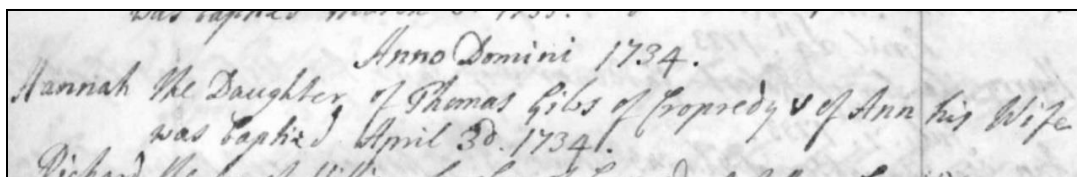 was baptized March 3d. 1733.
Anno Domini 1734.
Hannah the Daughter of Thomas Gibs of Cropredy & of Ann his Wife
was baptized April 3d. 1734.
Richard the